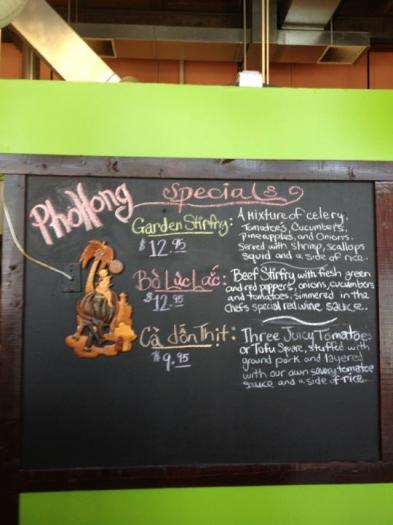 PhoHong
Specials
Garden Stirfry:
$12.95
A mixture of celery,
Tomatoes, Cucumbers,
Pineapples, and Onions.
Served with shrimp, scallops
squid and a side of rice.
Bò Lúc Lắc:
$12.95
Beef Stirfry with fresh green
and red peppers, onions, cucumbers
and tomatoes, simmered in the
Chef's special red wine sauce.
Cà dồn Thịt:
$9.95
Three Juicy Tomatoes
or Tofu Square, stuffed with
ground pork and layered
with our own savory tomatoe
sauce and a side of rice.